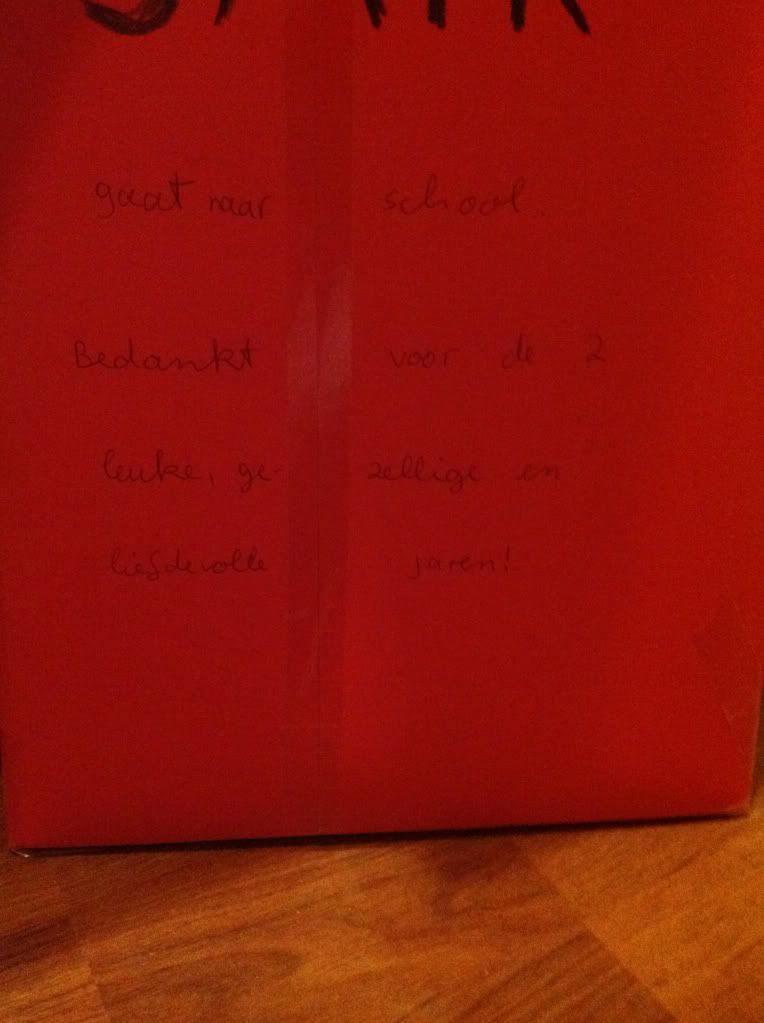 gaat naar school.
Bedankt voor de 2
leuke, ge-zellige en
liefdevolle jaren!